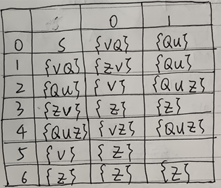 S 0 1
0 S {VQ} {QU}
1 {VQ} {ZV} {QU}
2 {QU} {V} {QUZ}
3 {ZV} {Z} {Z}
4 {QUZ} {VZ} {QUZ}
5 {V} {Z}
6 {Z} {Z} {Z}